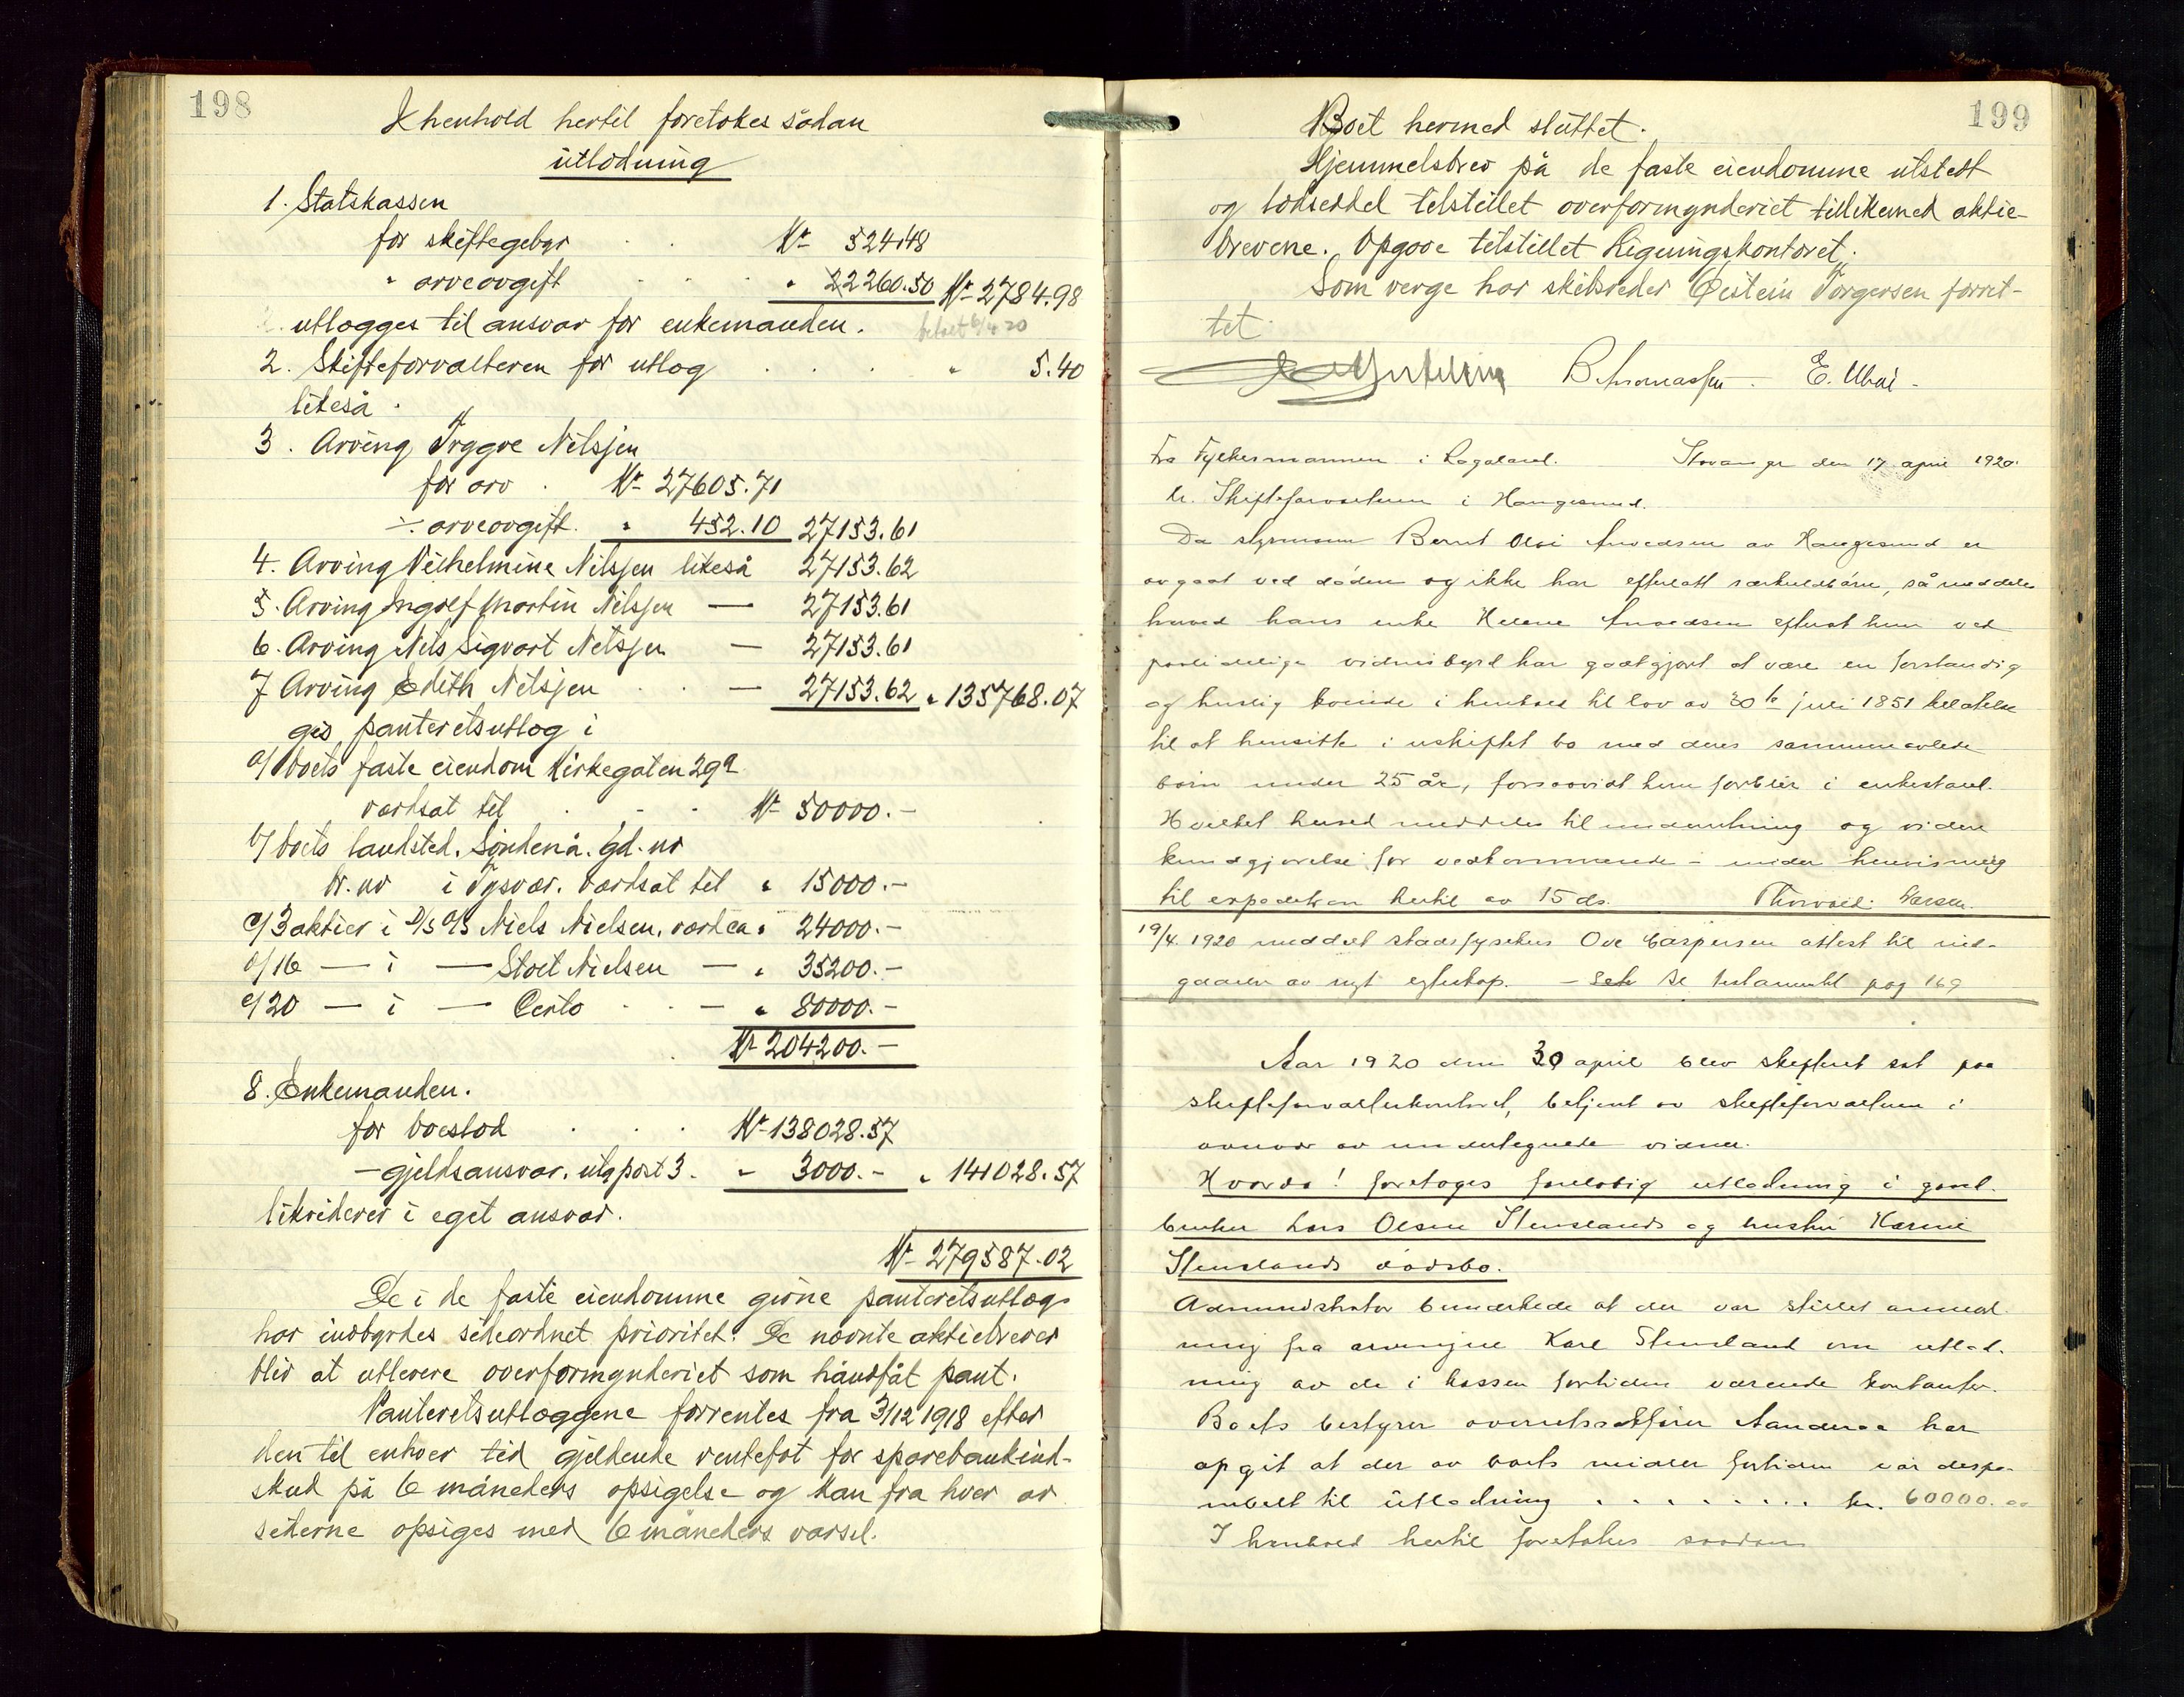 198
I henhold hertil foretokes sådan
utlodning
1. Statskassen
for skiftegebyr . . Kr 524.48
" arveavgift . . . " 2260.50 Kr 2784.98
utlægges til ansvar for enkemanden. betalt 6/4 20
2. Skifteforvalteren for utlæg . . . . " 5.40
likeså.
3. Arving Trygve Nilssen
for arv . Kr 27605.71
÷ arveavgift. " 452.10 27153.61
4. Arving Vilhelmine Nilssen likeså 27153.62
5. Arving Ingolf Martin Nilssen — 27153.61
6. Arving Nils Sigvart Nilssen — 27153.61
7 Arving Edith Nilssen . . — 27153.62 " 135768.07
gis panteretsutlæg i
a/ boets faste eiendom Kirkegaten 29a
værdsat til . - - Kr 50000.-
b/ boets landsted. Søndenå. gd. nr
br. nr i Tysvær. værdsat til " 15000.-
c/ 3 aktier i D/S A/S Niels Nielsen. værd ca " 24000.-
d/ 16 — i — Stolt Nielsen — " 35200.-
e/ 20 — i — Certo . . — " 80000.-
Kr 204200.-
8. Enkemanden.
for boeslod . . . Kr 138028.57
— gjeldsansvar. utg post 3. " 3000.- " 141028.57
likviderer i eget ansvar.
Kr 279587.02
De i de faste eiendomme givne panteretsutlæg
har indbyrdes sideordnet prioritet. De nævnte aktiebrever
blir at utlevere overformynderiet som håndfåt pant.
Panteretsutlæggene forrentes fra 3/12 1918 efter
den til enhver tid gjeldende rentefot for sparebankind-
skud på 6 måneders opsigelse og kan fra hver av
siderne opsiges med 6 måneders varsel.
199
Boet hermed sluttet.
Hjemmelsbrev på de faste eiendomme utstedt
og lodseddel tilstillet overformynderiet tillikemed aktie-
brevene. Opgave tilstillet Ligningskontoret.
Som verge har skibsreder Øistein Torgersen forret-
tet.
B. Thomassen. E. Ubai.
Fra Fylkesmannen i Rogaland. Stavanger den 17 april 1920.
hr. Skifteforvalteren i Haugesund.
Da styrmann Bernt Olai Amedsen av Haugesund er
avgaat ved døden og ikke har efterlatt særkuldbørn, så meddeles
herved hans enke Helene Amedsen efterat hun ved
paalidelige vidnesbyrd har godtgjort at være en forstandig
og huslig kvinde i henhold til lov av 30te juli 1851 tilladelse
til at hensitte i uskiftet bo med deres sammenavlede
børn under 25 år, forsaavidt hun forblir i enkestand.
Hvilket herved meddeles til underretning og videre
kundgjørelse for vedkommende - under henvisning
til expedition hertil av 15 ds. Thorvald Larsen.
19/4. 1920 meddelt stadsfysikus Ove Caspersen attest til ind-
gaaelse av nyt egteskap. — Sek se testamentet pag 169
Aar 1920 den 30 april blev skifteret sat paa
skifteforvalterkontoret, betjent av skifteforvalteren i
overvær av undertegnede vidner.
Hvorda! foretoges foreløbig utlodning i gaard-
bruker Lars Olsen Stenslands og hustru Karine
Stenslands dødsbo.
Administrator bemærkede at der var stillet anmod-
ning fra arvingene Karl Stensland om utlod-
ning av de i kassen fortiden værende kontanter.
Boets bestyrer overretssakfører Aanderaa har
opgit at der av boets midler fortiden var dispo-
nibelt til utlodning . . . . . . . . kr. 60000.00
I henhold hertil foretokes saadan